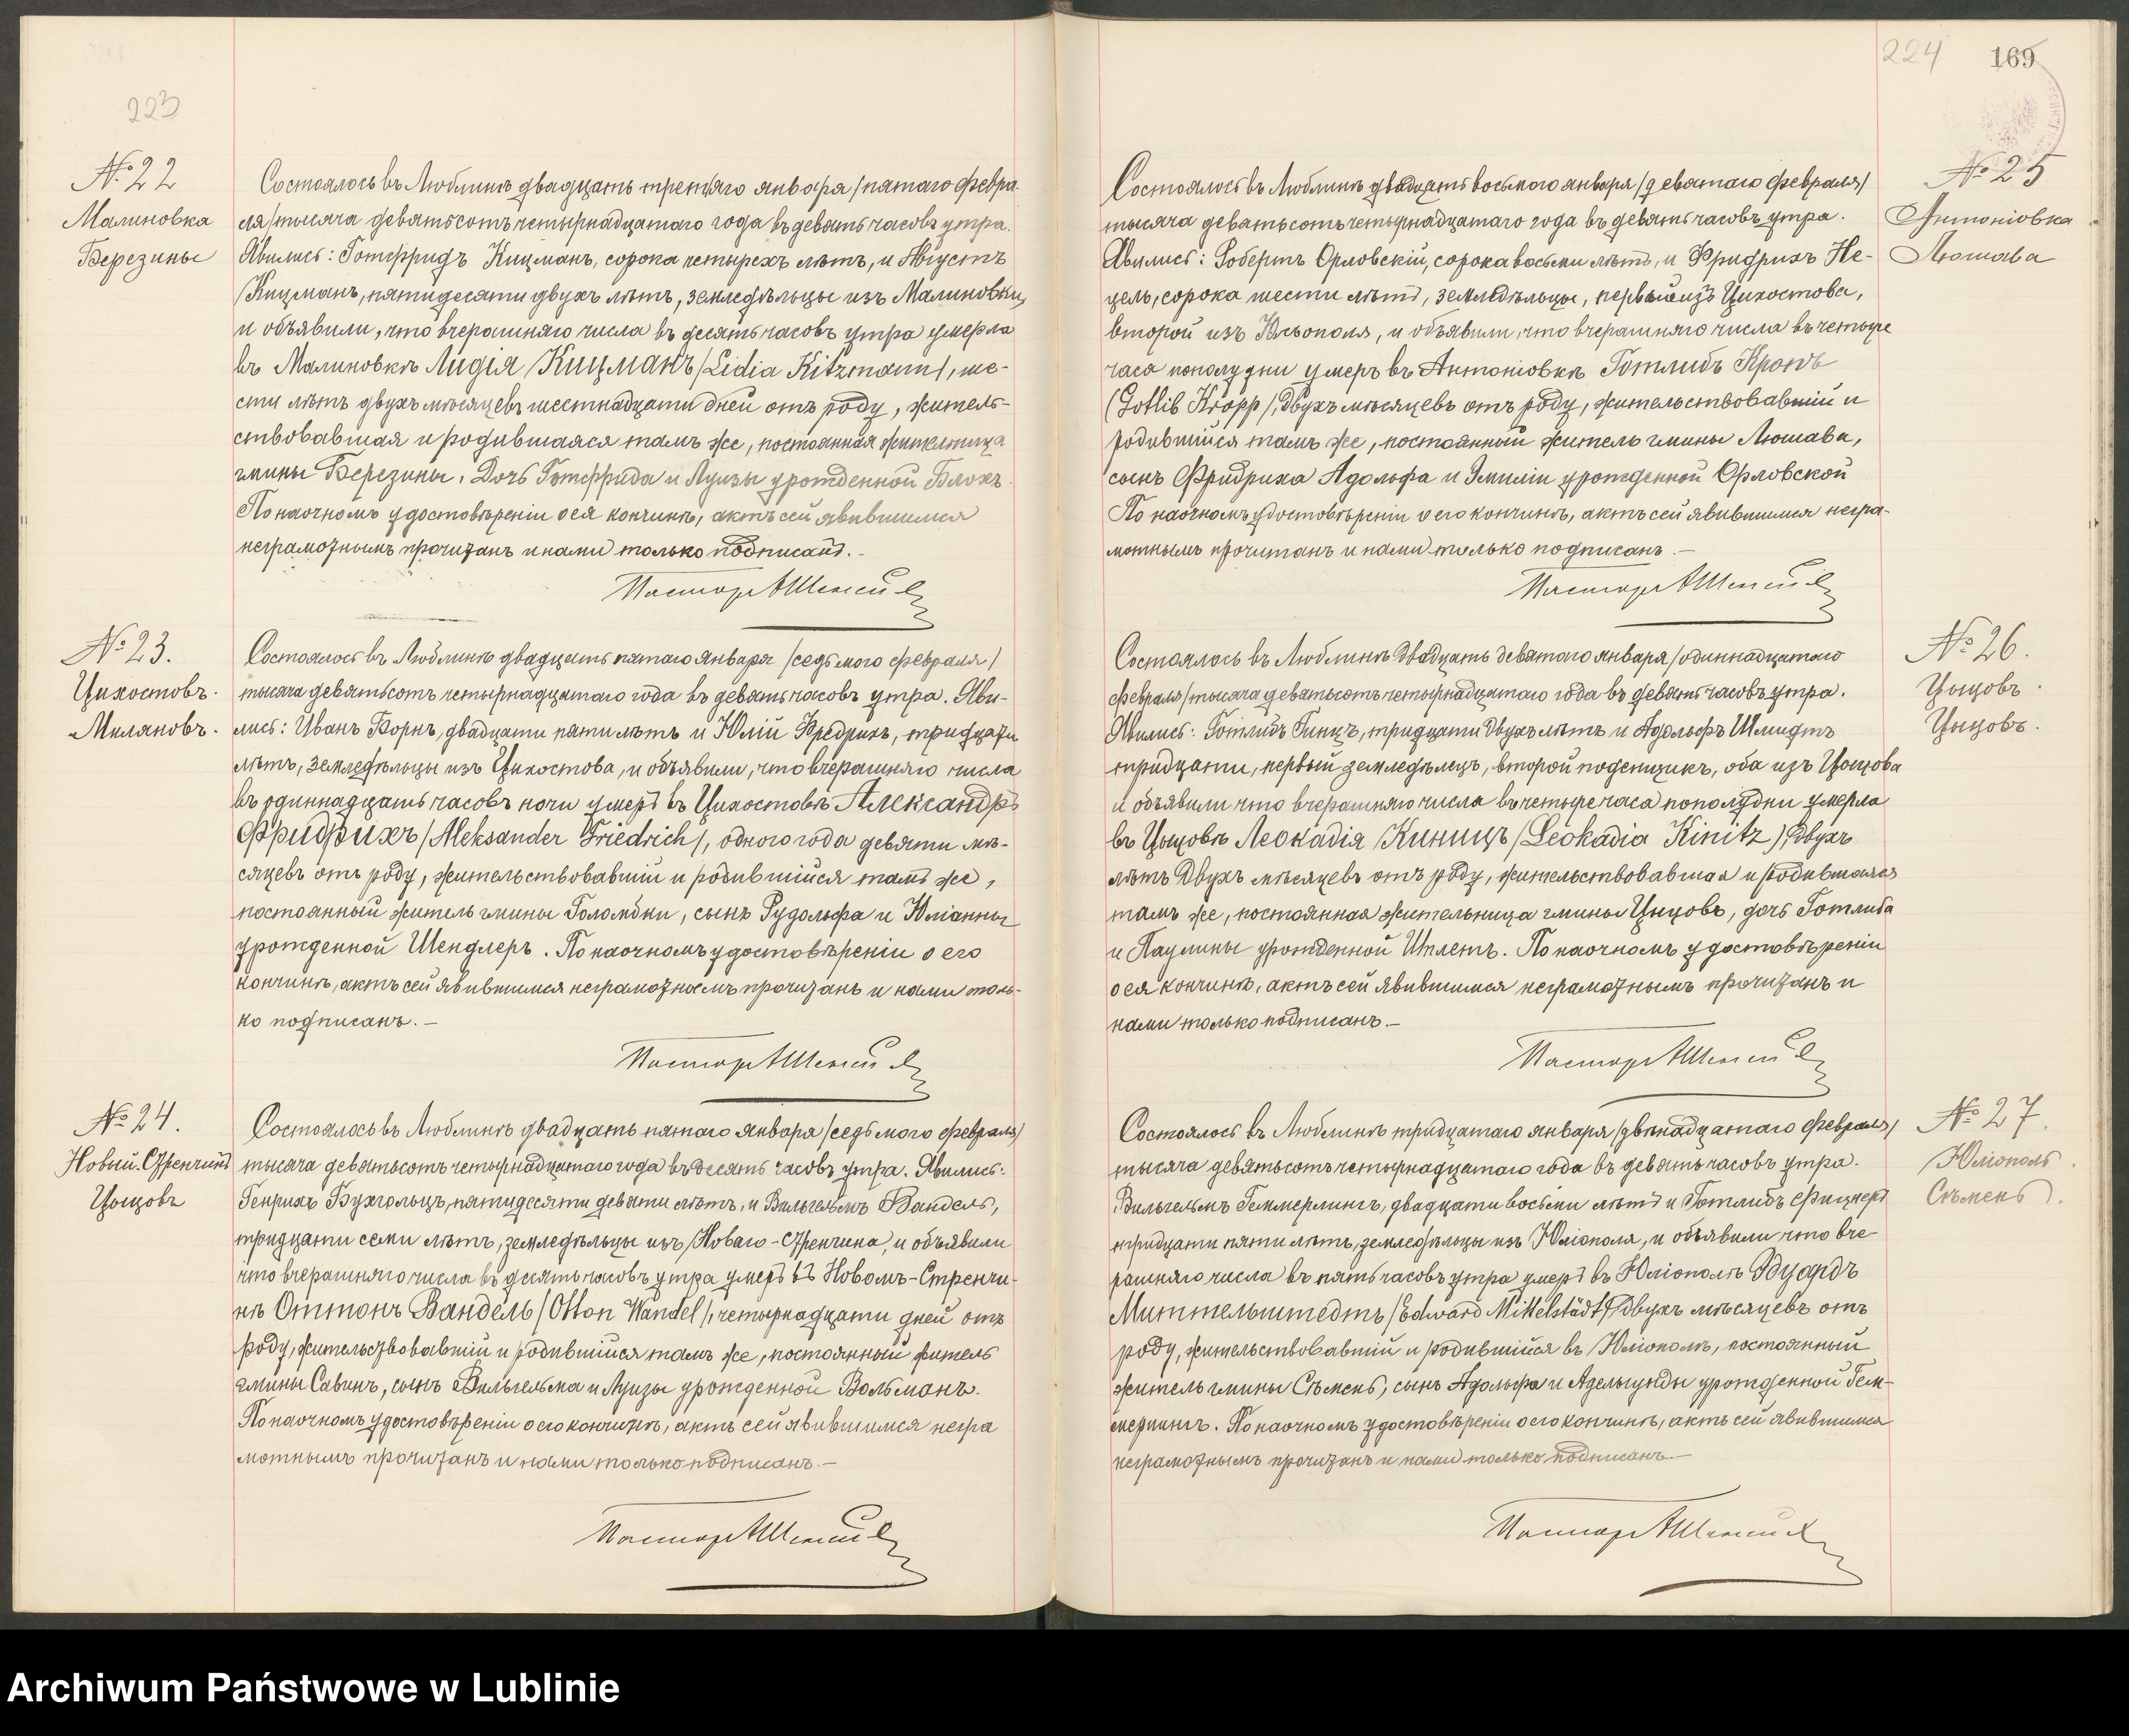 223
№ 22
Малиновка
Березины
Состоялось въ Люблинѣ двадцать третьяго января /пятаго февра-
ля/ тысяча девятьсотъ четырнадцатаго года въ девять часовъ утра.
Явились: Готфридъ Кицманъ, сорока четырехъ лѣтъ, и Августъ
Кицманъ, пятидесяти двухъ лѣтъ, земледѣльцы изъ Малиновки,
и объявили, что вчерашняго числа въ десять часовъ утра умерла
въ Малиновкѣ Лидія Кицманъ /Lidia Kitzmann/, ше-
сти лѣтъ двухъ мѣсяцевъ шестнадцати дней отъ роду, житель-
ствовавшая и родившаяся тамъ же, постоянная жительница
гмины Березины, Дочь Готфрида и Луизы урожденной Блохъ.
По наочномъ удостовѣреніи о ея кончинѣ, актъ сей явившимся
неграмотнымъ прочитанъ и нами только подписанъ.-
Пасторъ
№ 23.
Цихостовъ.
Миляновъ.
Состоялось въ Люблинѣ двадцать пятаго января /седьмого февраля/
тысяча девятьсотъ четырнадцатаго года въ девять часовъ утра. Яви-
лись: Иванъ Борнъ, двадцати пяти лѣтъ и Юлій Фредрихъ, тридцати
лѣтъ, земледѣльцы изъ Цихостова, и объявили, что вчерашняго числа
въ одиннадцать часовъ ночи умеръ въ Цихостовѣ Александръ
Фридрихъ /Aleksander Friedrich/, одного года девяти мѣ-
сяцевъ отъ роду, жительствовавшій и родившійся тамъ же,
постоянный житель гмины Голомбки, сынъ Рудольфа и Юліанны
урожденной Шендлеръ. По наочномъ удостовѣреніи о его
кончинѣ, актъ сей явившимся неграмотнымъ прочитанъ и нами толь-
ко подписанъ.-
Пасторъ
№ 24.
Новый-Стренчинъ
Цыцовъ
Состоялось въ Люблинѣ двадцать пятаго января /седьмого февраля/
тысяча девятьсотъ четырнадцатаго года въ десять часовъ утра. Явились:
Генрихъ Бухгольцъ, пятидесяти девяти лѣтъ, и Вильгельмъ Вандель,
тридцати семи лѣтъ, земледѣльцы изъ Новаго-Стренчина, и объявили
что вчерашняго числа въ десять часовъ утра умеръ въ Новомъ-Стренчи-
нѣ Оттонъ Вандель /Otton Wandel/, четырнадцати дней отъ
роду, жительствовавшій и родившійся тамъ же, постоянный житель
гмины Савинъ, сынъ Вильгельма и Луизы урожденной Вольманъ.
По наочномъ удостовѣреніи о его кончинѣ, актъ сей явившимся негра
мотнымъ прочитанъ и нами только подписанъ.-
Пасторъ
224 169
№ 25
Антоніовка
Люшава
Состоялось въ Люблинѣ двадцать восьмого января /девятаго февраля/
тысяча девятьсотъ четырнадцатаго года въ девять часовъ утра.
Явились: Робертъ Орловскій, сорока восьми лѣтъ, и Фридрихъ Не-
цель, сорока шести лѣтъ, земледѣльцы, первый изъ Цихостова,
второй изъ и объявили, что вчерашняго числа въ четыре
часа пополудни умеръ въ Антоніовкѣ Готлибъ Кропъ
(Gottlib Kropp/, Двухъ мѣсяцевъ отъ роду, жительствовавшій и
родившійся тамъ же, постоянный житель гмины Люшава,
сынъ Фридриха Адольфа и Эмиліи урожденной Орловской
По наочномъ удостовѣреніи о его кончинѣ, актъ сей явившимся негра-
мотнымъ прочитанъ и нами только подписанъ.-
Пасторъ
№ 26.
Цыцовъ.
Цыцовъ.
Состоялось въ Люблинѣ двадцать девятаго января /одиннадцатаго
февраля/ тысяча девятьсотъ четырнадцатаго года въ девять часовъ утра.
Явились: Готлибъ Гинцъ, тридцати двухъ лѣтъ и Адольфъ Шмидтъ
тридцати, первый земледѣлецъ, второй поденщикъ, оба изъ Цыцова
и объявили что вчерашняго числа въ четыре часа пополудни умерла
въ Цыцовѣ Леокадія Киницъ /Leokadia Kinitz/, Двухъ
лѣтъ Двухъ мѣсяцевъ отъ роду, жительствовавшая и родившаяся
тамъ же, постоянная жительница гмины Цыцовъ, дочь Готлиба
и Паулины урожденной По наочномъ удостовѣреніи
о ея кончинѣ, актъ сей явившимся неграмотнымъ прочитанъ и
нами только подписанъ.-
Пасторъ
№ 27.
Юліополь.
Сѣмень.
Состоялось въ Люблинѣ тридцатаго января /двѣнадцатаго февраля/
тысяча девятьсотъ четырнадцатаго года въ девять часовъ утра.
Вильгельмъ Геммерлингъ, двадцати восьми лѣтъ и Готлибъ Фицнеръ
тридцати пяти лѣтъ, земледѣльцы изъ Юліополя, и объявили что вче-
рашняго числа въ пять часовъ утра умеръ въ Юліополѣ Эдуардъ
Миттельштедтъ /Edward Mittelstädt/ двухъ мѣсяцевъ отъ
роду, жительствовавшій и родившійся въ Юліополѣ, постоянный
житель гмины Сѣмень, сынъ Адольфа и Адельгунды урожденной Гем-
мерлингъ. По наочномъ удостовѣреніи о его кончинѣ, актъ сей явившимся
неграмотнымъ прочитанъ и нами только подписанъ.-
Пасторъ
Archiwum Państwowe w Lublinie